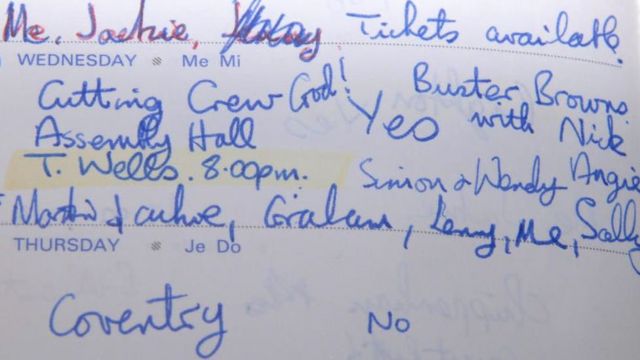 Me, Jackie, Tickets available
WEDNESDAY Me Mi
Cutting Crew God! Buster Browns
Assembly Hall Yes with Nick
T. Wells. 8.00pm. Simon & Wendy Angie
Martin Jackie, Graham, Lenny, Me, Sally
THURSDAY Je Do
Coventry No